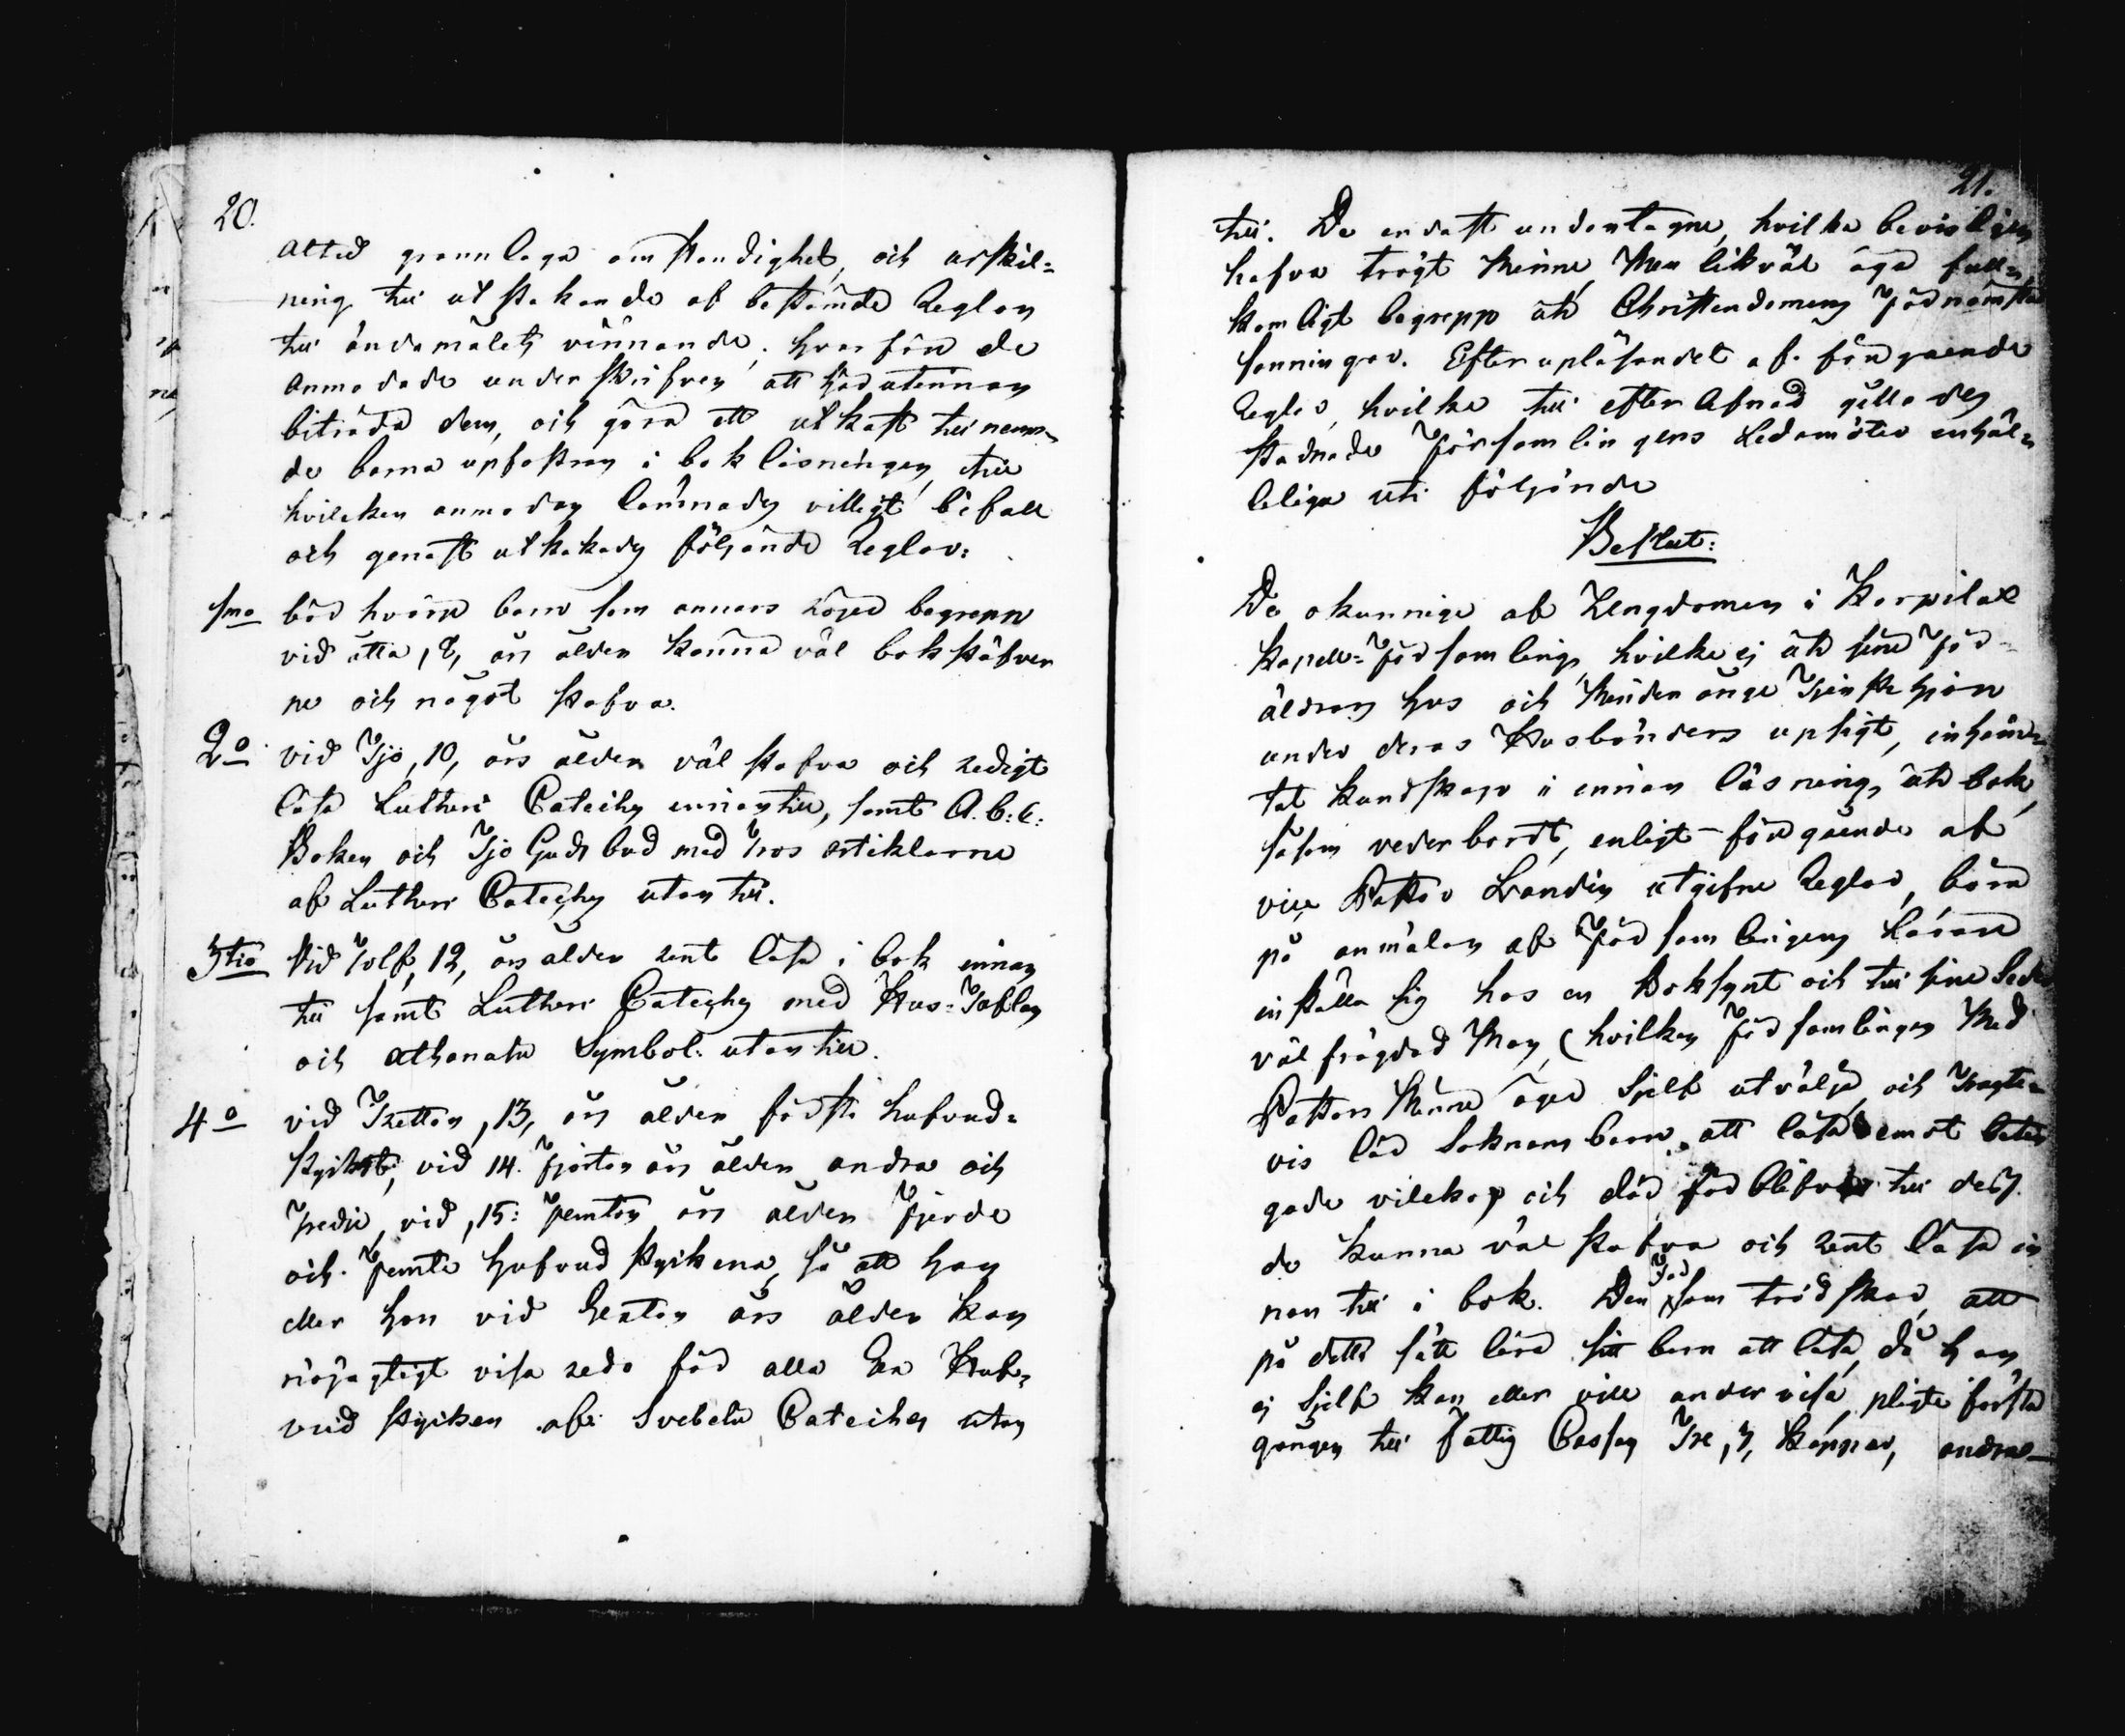 20.
alted grannlaga omständighet, och urskil=
ning till utstakande af bestämde Reglor
till ändamålets vinnande; hvarföre de
anmodade underskrifven att härutinnan
biträda dem, och göra ett utkast till nemn=
de barna upfostran i bokläsningen, till
hvilcken anmodan lämnades villigt bifall
och genast utstakades följande Reglor:
1mo bör hvarje barn som annars äger begrepp
vid åtta, 8, års ålder känna väl bokstäfver
ne och något stafva.
2o vid Tjo, 10, års ålder väl stafva och redigt
läsa Lutheri Cateches innantill, samt A.b.c.
Boken och Tjo Guds bud med tros artiklarne
af Lutheri Cateches utantill.
3tio Vid Tolf, 12, års ålder rent läsa i bok innan
till samt Lutheri Cateches med Hus=Taflan
och Athanasii Symbol: utantill.
4o vid Tretton, 13, års ålder första hufvud=
stycket, vid 14. Fjorton års ålder andra och
Tredje, vid, 15: Femton års ålder Fjerde
och Femte Hufvud styckena, så att han
eller hon vid Sexton års ålder kan
nöjagtigt visa reda för alla Sex Huf=
vud stycken af Svebelii Cateches utan
21.
till. De endast undantagne, hvilka bevisligen
hafva trögt Minne, Men likväl äga full=
komligt begrepp uti Christendomens Förnämsta
sanningar. Efter upläsandet af föregående
Reglor, hvilka till efterlefnad gillades
stadnade Församlingens Ledamöter enhäl=
leliga uti följande
Beslut:
De okunnige af Ungdomen i Karpilax
Kapell=Församling, hvilke ej uti sine För=
äldrars hus och Minderårige Tjenstehjon
under deras Husbönders upsigt, inhäm=
tat kundskap i innan läsning, uti bok,
såsom vederbordt, enligt föregående af
vice Pastor Brandin utgifne Reglor, böra
på anmälan af Församlingens Lärare
inställa sig hos en Boksynt och till sine Seder
väl frägdad Man, (hvilken Församlingen Med
Pastors Minne äger Sjelf utvälja, och Tragte=
vis lär Soknens barn, att läsa emot beta=
gade vilckor och där för blifva till dess
de kunna väl stafva och rent läsa in
nan till i bok. Den Far som tredskar, att
på detta sätt lära sitt barn att läsa, då han
ej Sjelf kan eller vill undervisa, plikte första
gången till Fattig Cassan Tre, 3, kappar, andra